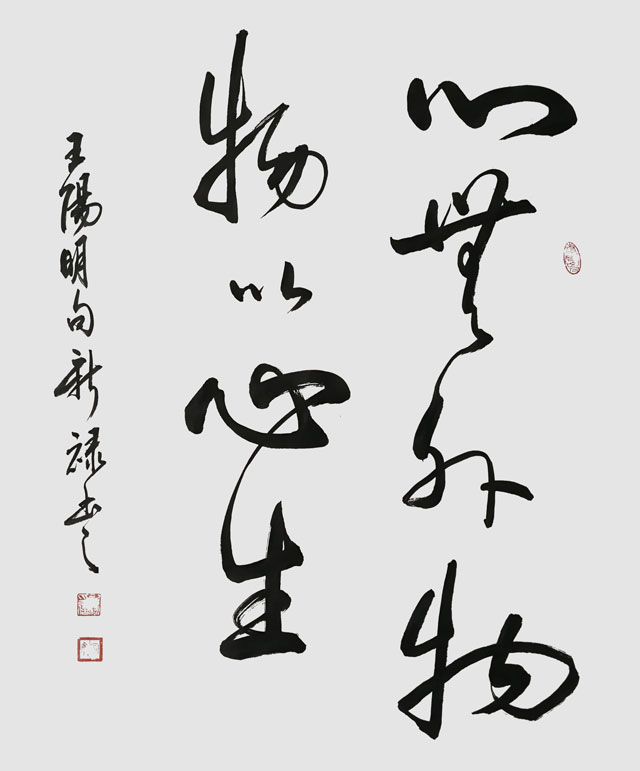 心無外物
物以心生
王陽明句新禄书之